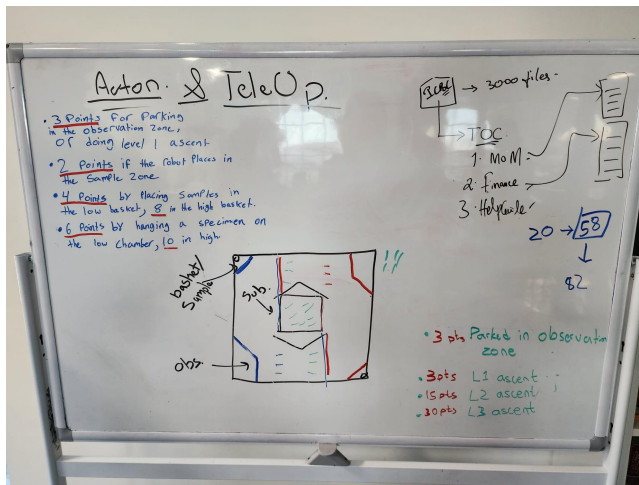 Auton. & TeleOp.
• 3 Points for Parking
in the observation zone,
or doing level 1 ascent
• 2 Points if the robot Places in
the Sample Zone
• 4 Points by placing samples in
the low basket, 8 in the high basket.
• 6 Points by hanging a specimen on
the low chamber, 10 in high
→ 3000 files.
TOC
1. MoM
2. Finance
3.
20 → 58
82
basket/
Sample
Sub.
Obs
• 3 pts Parked in observation
zone
• 3pts L1 ascent
• 15pts L2 ascent
• 30pts L3 ascent